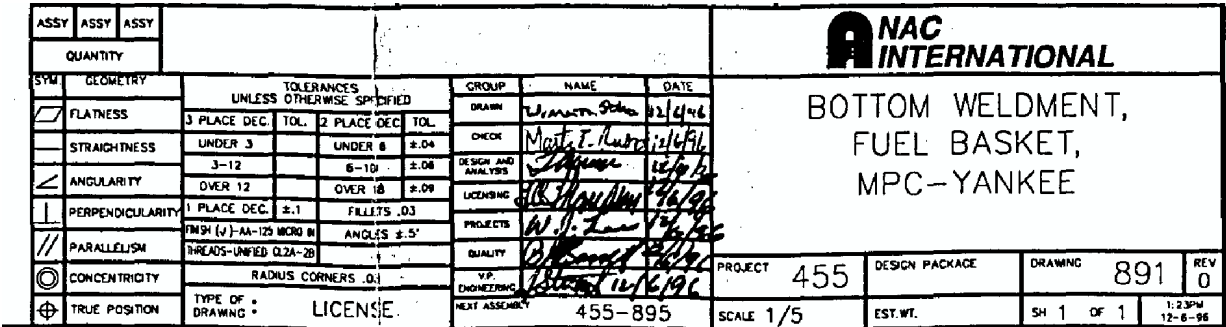 ASSY ASSY ASSY
QUANTITY
NAC
INTERNATIONAL
SYM GEOMETRY
FLATNESS
STRAIGHTNESS
ANGULARITY
PERPENDICULARITY
PARALLELISM
CONCENTRICITY
TRUE POSITION
TOLERANCES
UNLESS OTHERWISE SPECIFIED
3 PLACE DEC. TOL. 2 PLACE DEC TOL.
UNDER 3 UNDER 6 ±.04
3-12 6-18 ±.06
OVER 12 OVER 18 ±.09
1 PLACE DEC. ±.1 FILLETS .03
FINISH (√)-AA-125 MICRO IN ANGLES ±.5°
THREADS-UNIFIED CL2A-2B
RADIUS CORNERS .03
TYPE OF DRAWING: LICENSE
GROUP NAME DATE
DRAWN 12/6/96
CHECK 12/6/96
DESIGN AND
ANALYSIS
LICENSING
PROJECTS
QUALITY
V.P.
ENGINEERING 12/6/96
NEXT ASSEMBLY 455-895
BOTTOM WELDMENT,
FUEL BASKET,
MPC-YANKEE
PROJECT 455 DESIGN PACKAGE DRAWING 891 REV 0
SCALE 1/5 EST.WT. SH 1 OF 1 1:23PM
12-6-96